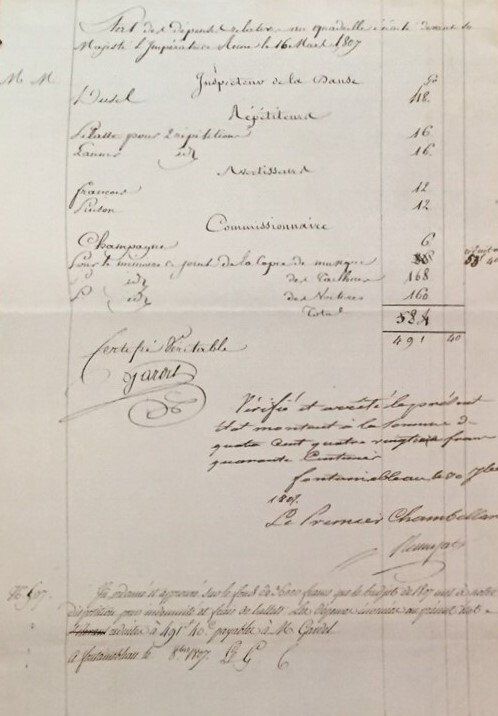 Etat des dépenses relative au quadrille exécuté devant sa
Majesté l'Impératrice Reine le 16 Mars 1807
M M Inspecteur de la Danse
48.
Répétiteurs
pour 2 repetitions 16
idem 16
Avertisseurs
francois 12
12
Commissionnaire
Champagne 6
Pour le mémoire ci joint de la Copie de musique 40
idem des 168
idem des Voitures 160
Total 524
491 40
Certifié Véritable
Gardel
Vérifié et arrêté le présent
Etat montant à la somme de
quatre cent quatre vingt onze francs
quarante Centimes
fontainebleau le 30 7bre
1807.
Le Premier Chambellan
Remusat
Vu, ordonné et approuvé sur le fonds de francs que le budget de 1807 met à notre
disposition pour indemnités et frais de ballets Les Dépenses énoncées au présent état
réduites à 491f 40c payable à M. Gardel
A fontainebleau le 8bre 1807.